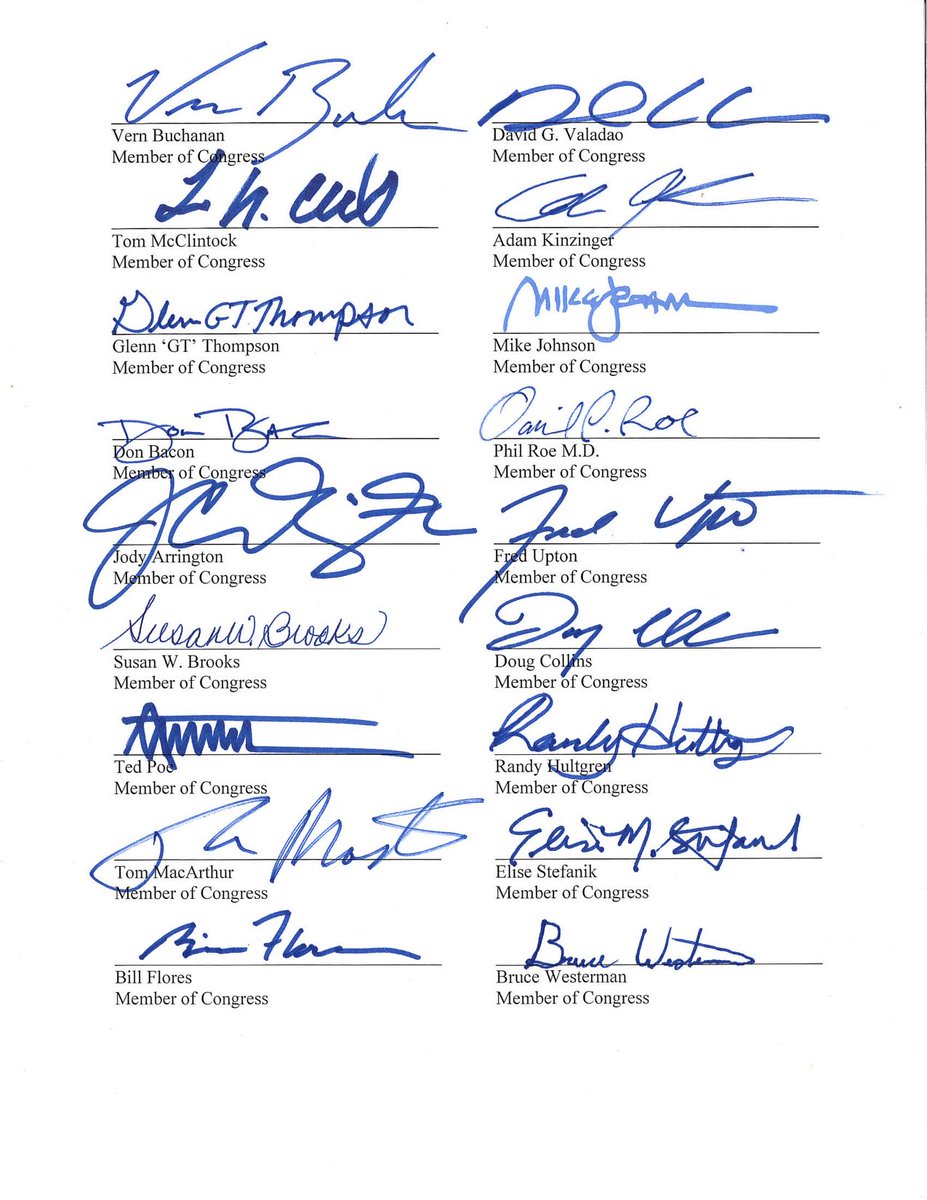 Vern Buchanan
Member of Congress
David G. Valadao
Member of Congress
Tom McClintock
Member of Congress
Adam Kinzinger
Member of Congress
Glenn GT Thompson
Glenn ‘GT’ Thompson
Member of Congress
Mike Johnson
Member of Congress
Don Bacon
Member of Congress
David P. Roe
Phil Roe M.D.
Member of Congress
Jody Arrington
Member of Congress
Fred Upton
Fred Upton
Member of Congress
Susan W. Brooks
Susan W. Brooks
Member of Congress
Doug Collins
Member of Congress
Ted Poe
Member of Congress
Randy Hultgren
Randy Hultgren
Member of Congress
Tom MacArthur
Member of Congress
Elise M. Stefanik
Elise Stefanik
Member of Congress
Bill Flores
Member of Congress
Bruce Westerman
Bruce Westerman
Member of Congress